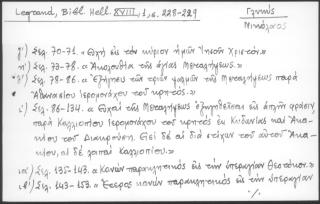 Legrand, Bibl. Hell. XVIII, 1, σ. 228-229
Γλυκύς
Νικόλαος
ζ') Σελ. 70-71. «Εὐχὴ εἰς τὸν κύριον ἡμῶν Ἰησοῦν Χριστόν».
η') Σελ. 73-78. «Ἀκολουθία τῆς ἁγίας Μεταλήψεως».
θ') Σελ. 79-86. «Ἐξήγησις τῶν τριῶν ψαλμῶν τῆς Μεταλήψεως παρὰ
Ἀθανασίου ἱερομονάχου τοῦ κρητός».
ι') Σελ. 86-134. «Εὐχαὶ τῆς Μεταλήψεως ἐξηγηθεῖσαι εἰς ἁπλῆν φράσιν
παρὰ Καλλιοπίου ἱερομονάχου τοῦ κρητὸς ἐκ Κυδωνίας καὶ Ἀκα-
κίου τοῦ Διακρούση. Εἰσὶ δὲ αἱ διὰ στίχων τοῦ αὐτοῦ Ἀκα-
κίου, αἱ δὲ λοιπαὶ Καλλιοπίου».
ια') Σελ. 135-143. «Κανὼν παρακλητικὸς εἰς τὴν ὑπεραγίαν Θεοτόκον».
ιβ') Σελ. 143-153. «Ἕτερος κανὼν παρακλητικὸς εἰς τὴν ὑπεραγίαν
·/.